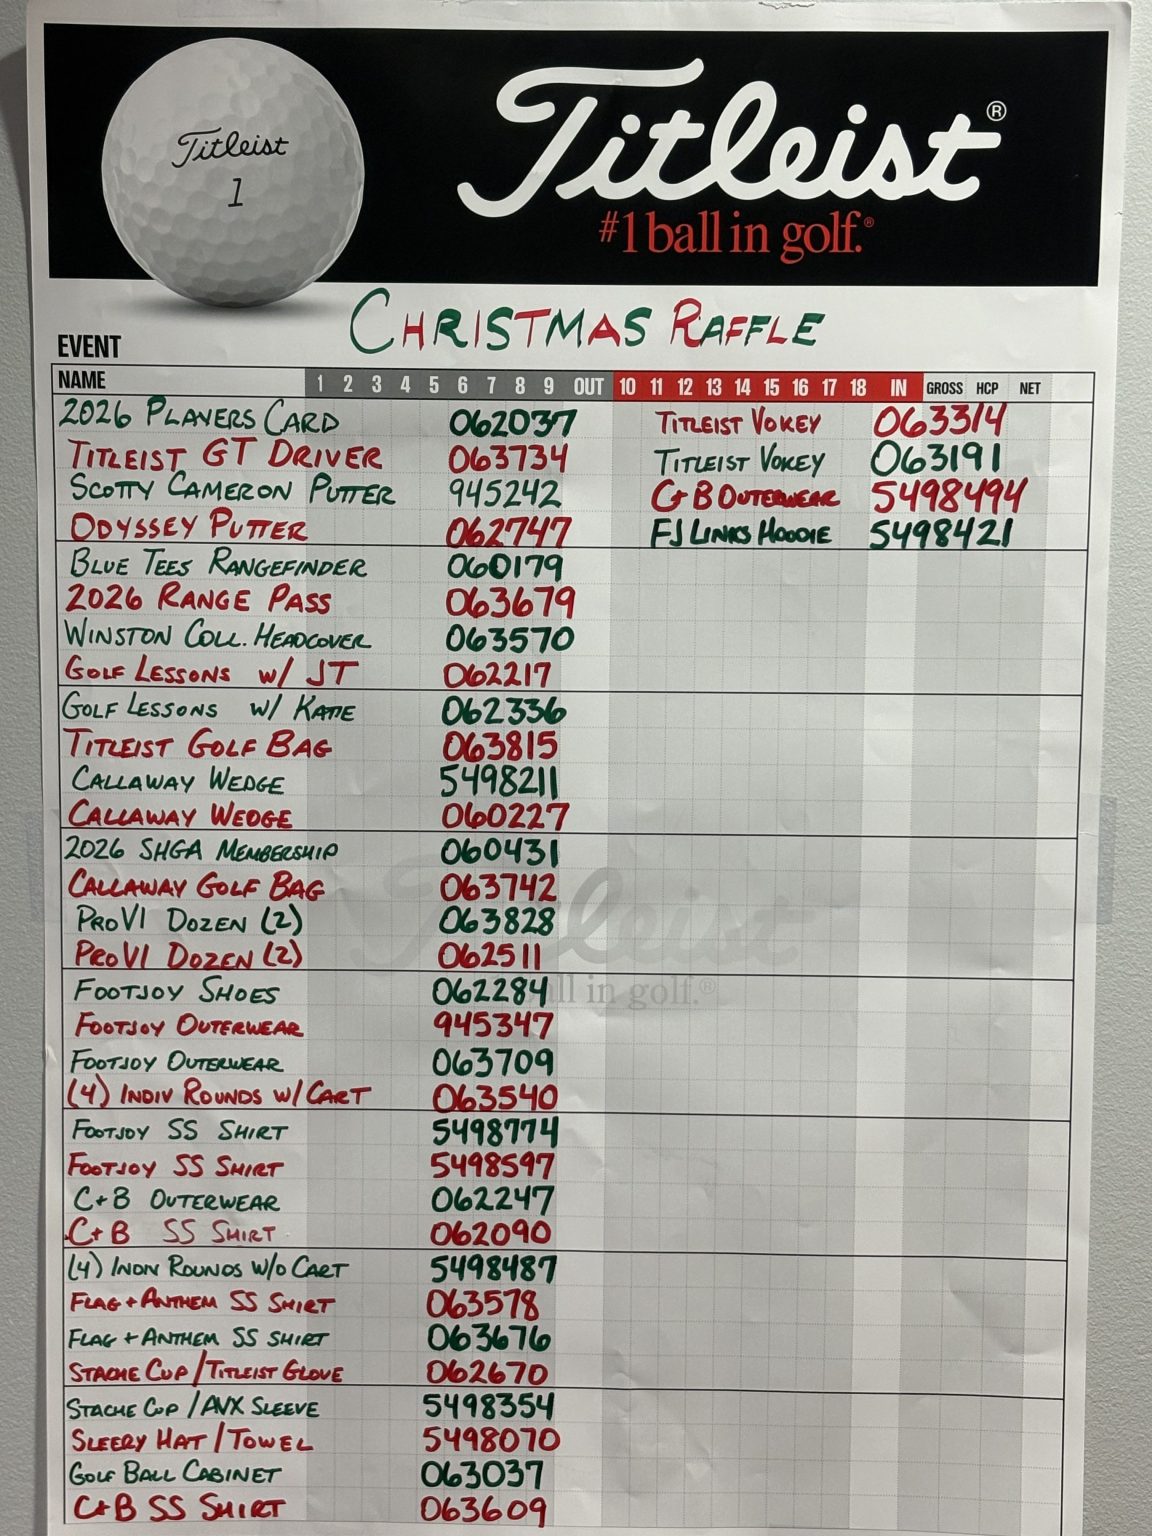 Titleist
1
Titleist®
#1 ball in golf.®
CHRISTMAS RAFFLE
EVENT
NAME 1 2 3 4 5 6 7 8 9 OUT 10 11 12 13 14 15 16 17 18 IN GROSS HCP NET
2026 PLAYERS CARD 062037 TITLEIST VOKEY 063314
TITLEIST GT DRIVER 063734 TITLEIST VOKEY 063191
SCOTTY CAMERON PUTTER 945242 C+B OUTERWEAR 5498494
ODYSSEY PUTTER 062747 FJ LINKS HOODIE 5498421
BLUE TEES RANGEFINDER 060179
2026 RANGE PASS 063679
WINSTON COLL. HEADCOVER 063570
GOLF LESSONS w/ JT 062217
GOLF LESSONS w/ KATIE 062336
TITLEIST GOLF BAG 063815
CALLAWAY WEDGE 5498211
CALLAWAY WEDGE 060227
2026 SHGA MEMBERSHIP 060431
CALLAWAY GOLF BAG 063742
PROV1 DOZEN (2) 063828
PROV1 DOZEN (2) 062511
FOOTJOY SHOES 062284
FOOTJOY OUTERWEAR 945347
FOOTJOY OUTERWEAR 063709
(4) INDIV ROUNDS W/CART 063540
FOOTJOY SS SHIRT 5498774
FOOTJOY SS SHIRT 5498597
C+B OUTERWEAR 062247
C+B SS SHIRT 062090
(4) INDIV ROUNDS W/O CART 5498487
FLAG + ANTHEM SS SHIRT 063578
FLAG + ANTHEM SS SHIRT 063676
STACHE CUP/TITLEIST GLOVE 062670
STACHE CUP/AVX SLEEVE 5498354
HAT/TOWEL 5498070
GOLF BALL CABINET 063037
C+B SS SHIRT 063609
Titleist
ball in golf.®